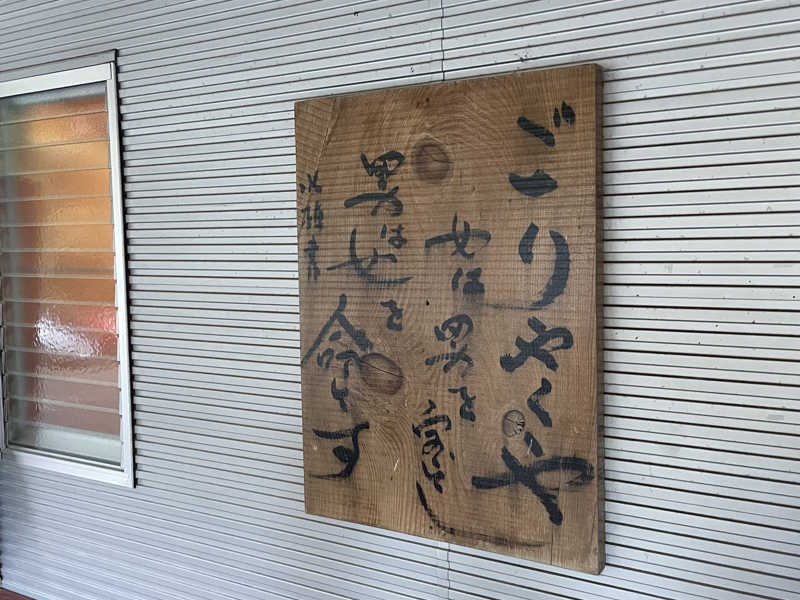 ごりやくや
女は男を宝とし
男は女を命とす